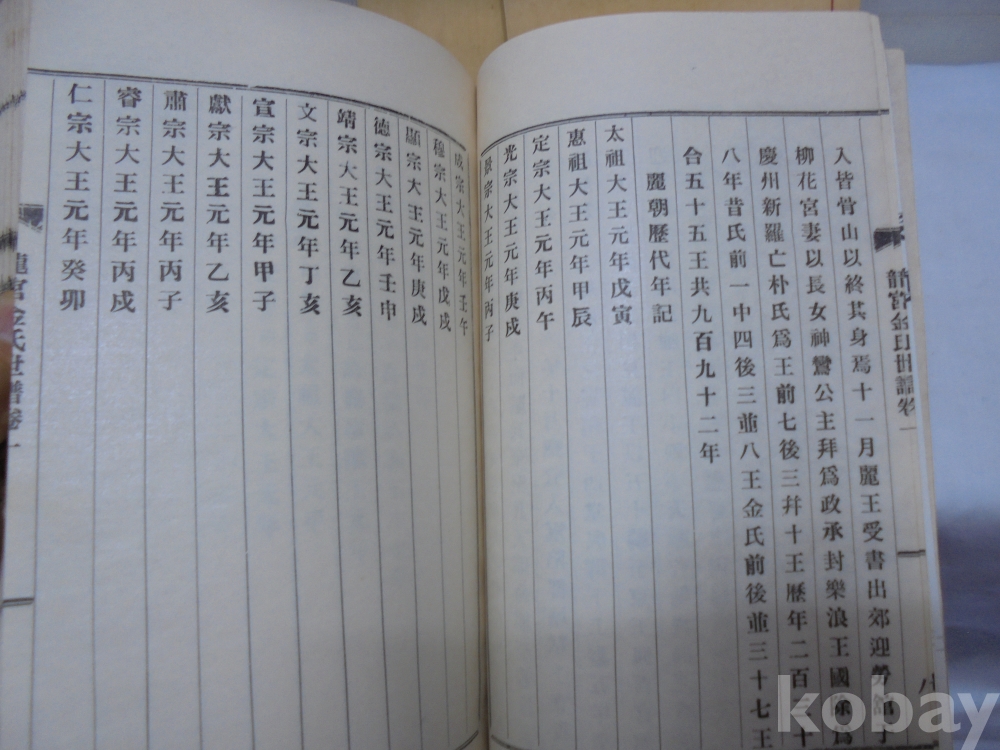 入皆骨山以終其身焉十一月麗王受書出郊迎勞舘
柳花宮妻以長女神鸞公主拜爲政承封樂浪王國除爲
慶州新羅亡朴氏爲王前七後三幷十王歷年二百三十
八年昔氏前一中四後三並八王金氏前後並三十七王
合五十五王共九百九十二年
麗朝歷代年記
太祖大王元年戊寅
惠祖大王元年甲辰
定宗大王元年丙午
光宗大王元年庚戌
景宗大王元年丙子
成宗大王元年壬午
穆宗大王元年戊戌
顯宗大王元年庚戌
德宗大王元年壬申
靖宗大王元年乙亥
文宗大王元年丁亥
宣宗大王元年甲子
獻宗大王元年乙亥
肅宗大王元年丙子
睿宗大王元年丙戌
仁宗大王元年癸卯
龍宮金氏世譜卷一
龍宮金氏世譜卷一
八
kobay